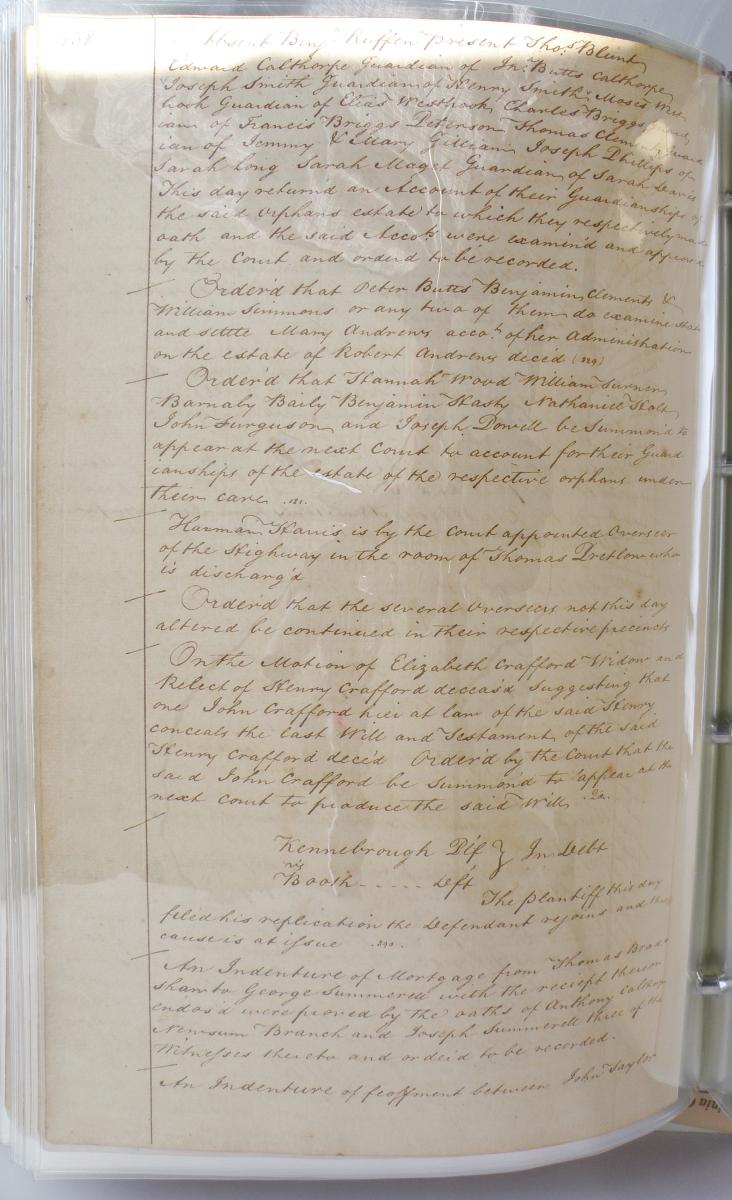 138
Absent Benj. Ruffin Present Thos. Blunt
Edward Calthorpe Guardian of Jno. Butts Calthorpe
Joseph Smith Guardian of Henry Smith Moses West
brook Guardian of Elias Westbrook Charles Briggs Guard
ian of Francis Briggs Peterson Thomas Clements Guard
ian of Jemmy & Mary Gilliam Joseph Phillips of
Sarah Long Sarah Magel Guardian of Sarah Davis
This day return'd an Account of their Guardianships of
the said orphans estate to which they respectively made
oath and the said Accots. were examin'd and approved
by the Court and order'd to be recorded.
Order'd that Peter Butts Benjamin Clements &
William Simmons or any two of them do examine state
and settle Mary Andrews accot. of her Administration
on the estate of Robert Andrews deced
Order'd that Hannah Wood William Turner
Barnaby Baily Benjamin Hasty Nathaniel Holt
John Furguson and Joseph Dowell be Summon'd to
appear at the next Court to account for their Guard
ianships of the estate of the respective orphans under
their care
Harman Harris is by the Court appointed Overseer
of the Highway in the room of Thomas Pretlow who
is discharg'd
Order'd that the several Overseers not this day
altered be continued in their respective precincts
On the Motion of Elizabeth Crafford Widow and
Relect of Henry Crafford deceas'd Suggesting that
one John Crafford heir at law of the said Henry
conceals the Last Will and Testament of the said
Henry Crafford dece'd Order'd by the Court that the
said John Crafford be Summon'd to appear at the
next Court to produce the said Will
Kennebrough Plf } In Debt
vs
Booth - - - - - Deft
The Plantiff this day
filed his replication the Defendant rejoins and the
cause is at issue
An Indenture of Mortgage from Thomas Brad
shaw to George Summerell with the reciept thereon
endos'd were proved by the oaths of Anthony Calthorp
Newsum Branch and Joseph Summerell three of the
Witnesses thereto and order'd to be recorded.
An Indenture of feoffment between John Taylor